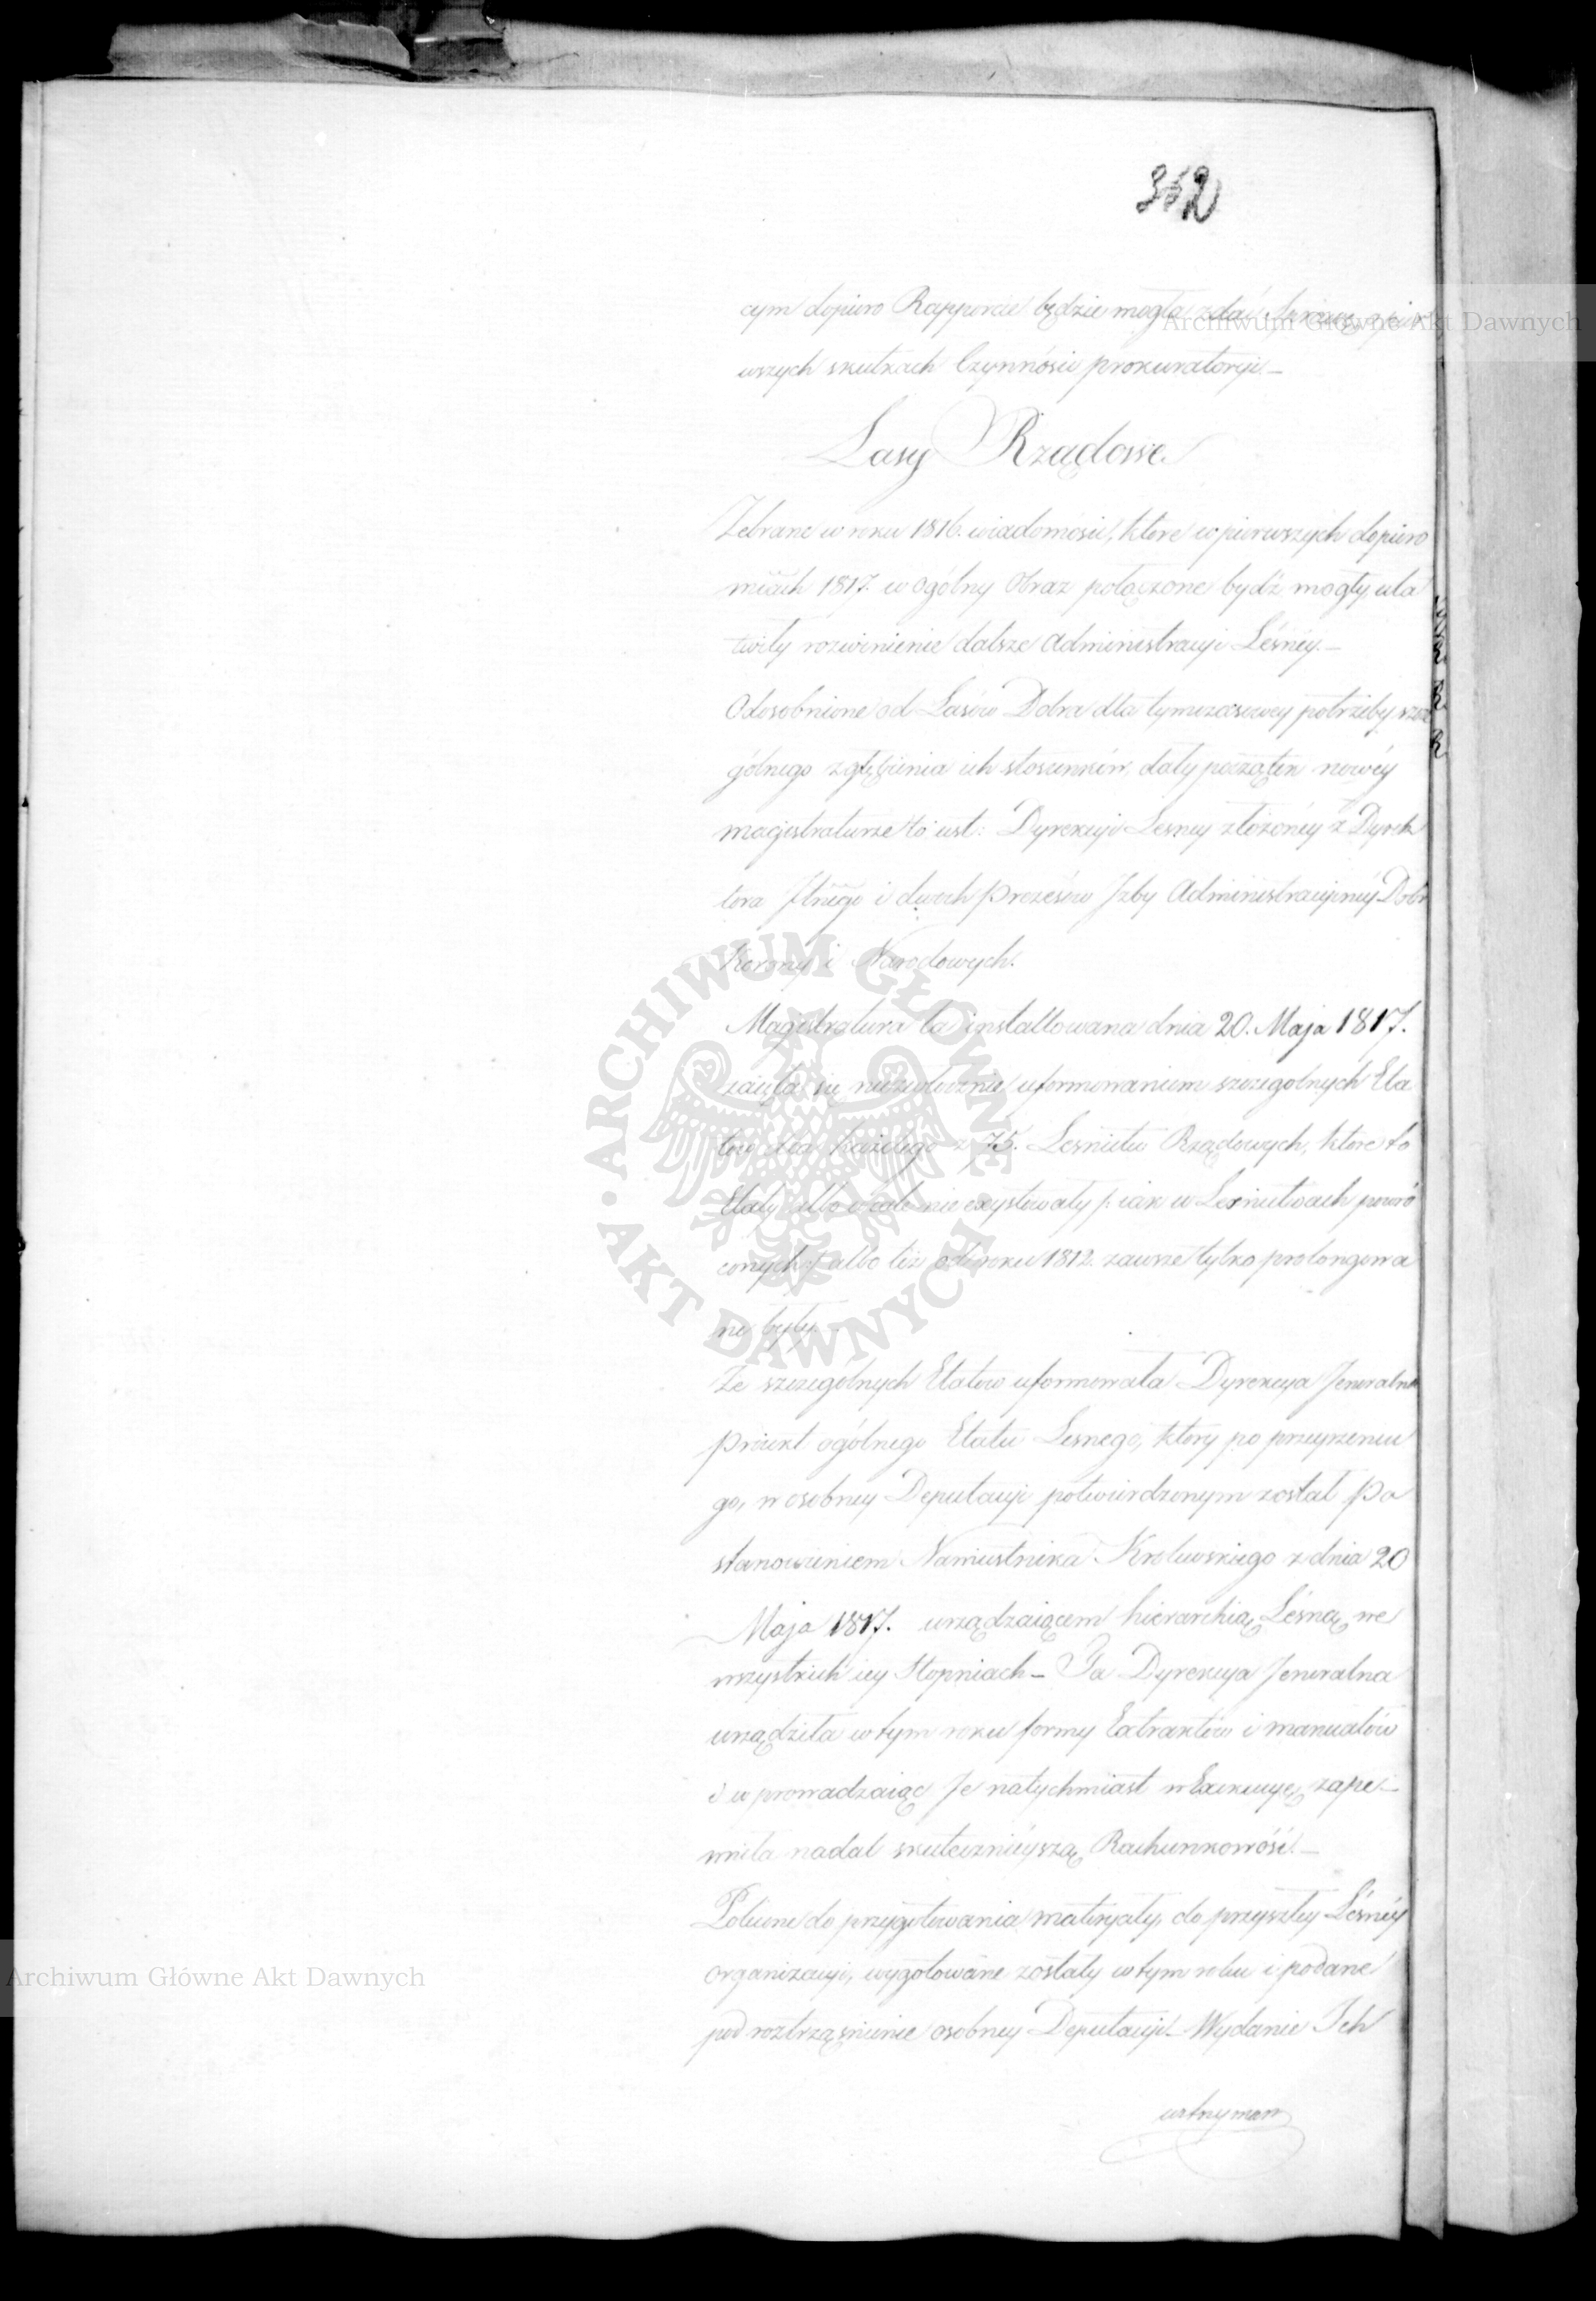 352
Archiwum Główne Akt Dawnych
cym dopiero Rapporcie będzie mogła zdać Sprawę o pier
wszych skutkach Czynności prokuratoryi.
Lasy Rządowe
Zebrane w roku 1816. wiadomości, które w pierwszych dopiero
mcach 1817. w ogólny Obraz połączone bydź mogły, uła
twiły rozwinienie dalsze Administracyi Leśney.
Odosobnione od Lasów Dobra dla tymczasowey potrzeby szcze
gólnego zgłębienia ich stosunków, dały początek nowéy
magistraturze to iest: Dyrekcyi Lesney złożonéy z Dyrek
tora Jlnego i dwoch Prezesów Izby Administracyinéy Dobr
Korony i Narodowych.
Magistratura ta installowana dnia 20. Maja 1817.
zaięła się niezwłocznie uformowaniem szczegolnych Eta
tow dla każdego z 75. Lesnictw Rządowych, które to
Etaty albo wcale nie exystowały /: iak w Lesnictwach powró
conych :/ albo też od roku 1812. zawsze tylko prolongowa
ne były.
Ze szczególnych Etatow uformowała Dyrekcya Jeneralna
Proiekt ogólnego Etatu Lesnego, ktory po przeyrzeniu
go, w osobney Deputacyi potwierdzonym został Po
stanowieniem Namiestnika Krolewskiego z dnia 20
Maja 1817. urządzaiącem hierarchią Leśną we
wszystkich iey Stopniach - Ta Dyrekcya Jeneralna
urządziła w tym roku formy Extraktów i manuałów
i wprowadzaiąc Je natychmiast w Exekucyę, zape-
wniła nadal skutecznieyszą Rachunkowość.
Polecone do przygotowania materyały, do przyszłey Leśnéy
organizacyi, wygotowane zostały w tym roku i podane
pod roztrząśnienie osobney Deputacyi - Wydanie Ich
wstrzyman
ARCHIWUM GŁÓWNE AKT DAWNYCH
Archiwum Główne Akt Dawnych